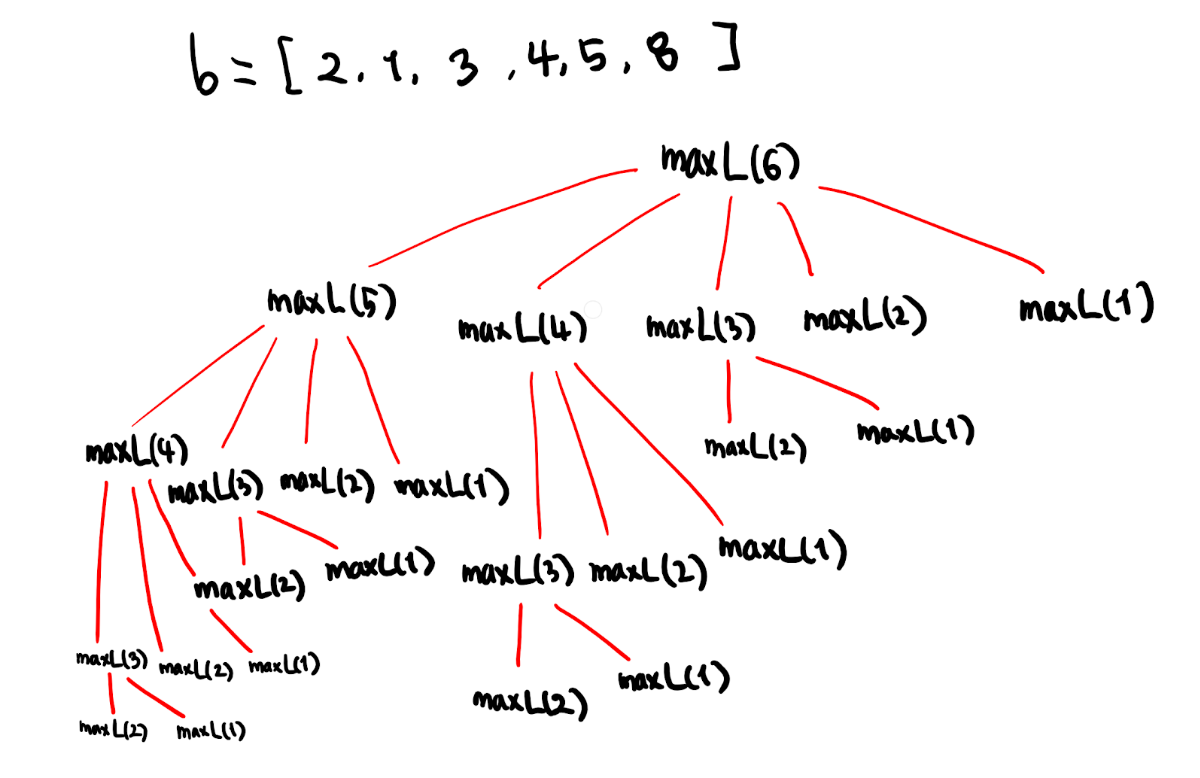 b = [ 2, 1, 3, 4, 5, 8 ]
maxL(6)
maxL(5) maxL(4) maxL(3) maxL(2) maxL(1)
maxL(4) maxL(3) maxL(2) maxL(1) maxL(2) maxL(1)
maxL(2) maxL(1) maxL(3) maxL(2) maxL(1)
maxL(3) maxL(2) maxL(1) maxL(2) maxL(1)
maxL(2) maxL(1)